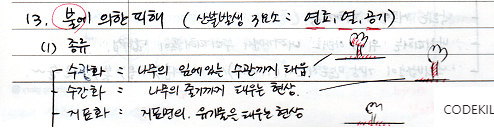 13. 불에 의한 피해 (산불발생 3요소 : 연료, 열, 공기)
(1) 종류
- 수관화 : 나무의 잎에있는 수관까지 태움.
- 수간화 : 나무의 줄기까지 태우는 현상.
- 지표화 : 지표면의 유기물을 태우는 현상
CODEKIL